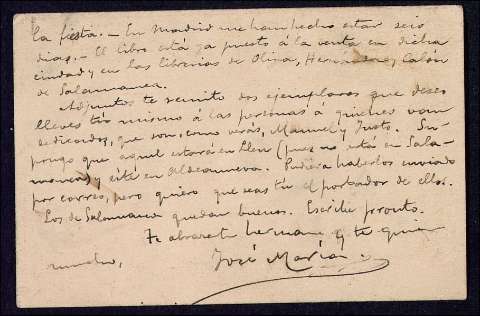 la fiesta. — En Madrid me han hecho estar seis
dias. — El libro está ya puesto á la venta en dicha
ciudad y en las librerias de Oliva, Hernández, Calon
de Salamanca.
Adjuntos te remito dos ejemplares que deseo
lleves tú mismo á las personas á quienes van
dedicados, que son, como verás, Manuel y Justo. Su-
pongo que aquel estará en Llen (pues no está en Sala-
manca) y este en Aldeanueva. Pudiera haberlos enviado
por correo, pero quiero que seas tú el portador de ellos.
Los de Salamanca quedan buenos. Escribe pronto.
Te abraza tu hermano y te quiere
mucho,
José María.